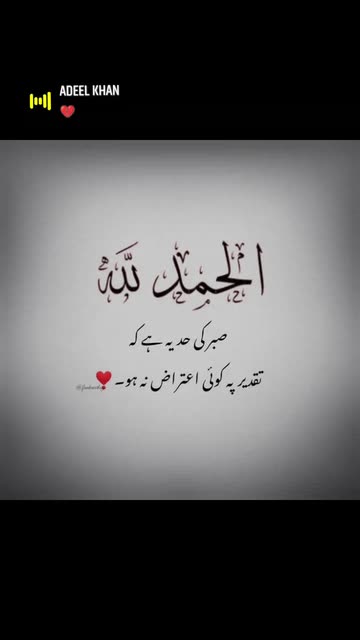 ADEEL KHAN
❤️
الحمد للہ
صبر کی حد یہ ہے کہ
تقدیر پہ کوئی اعتراض نہ ہو۔ ❤️